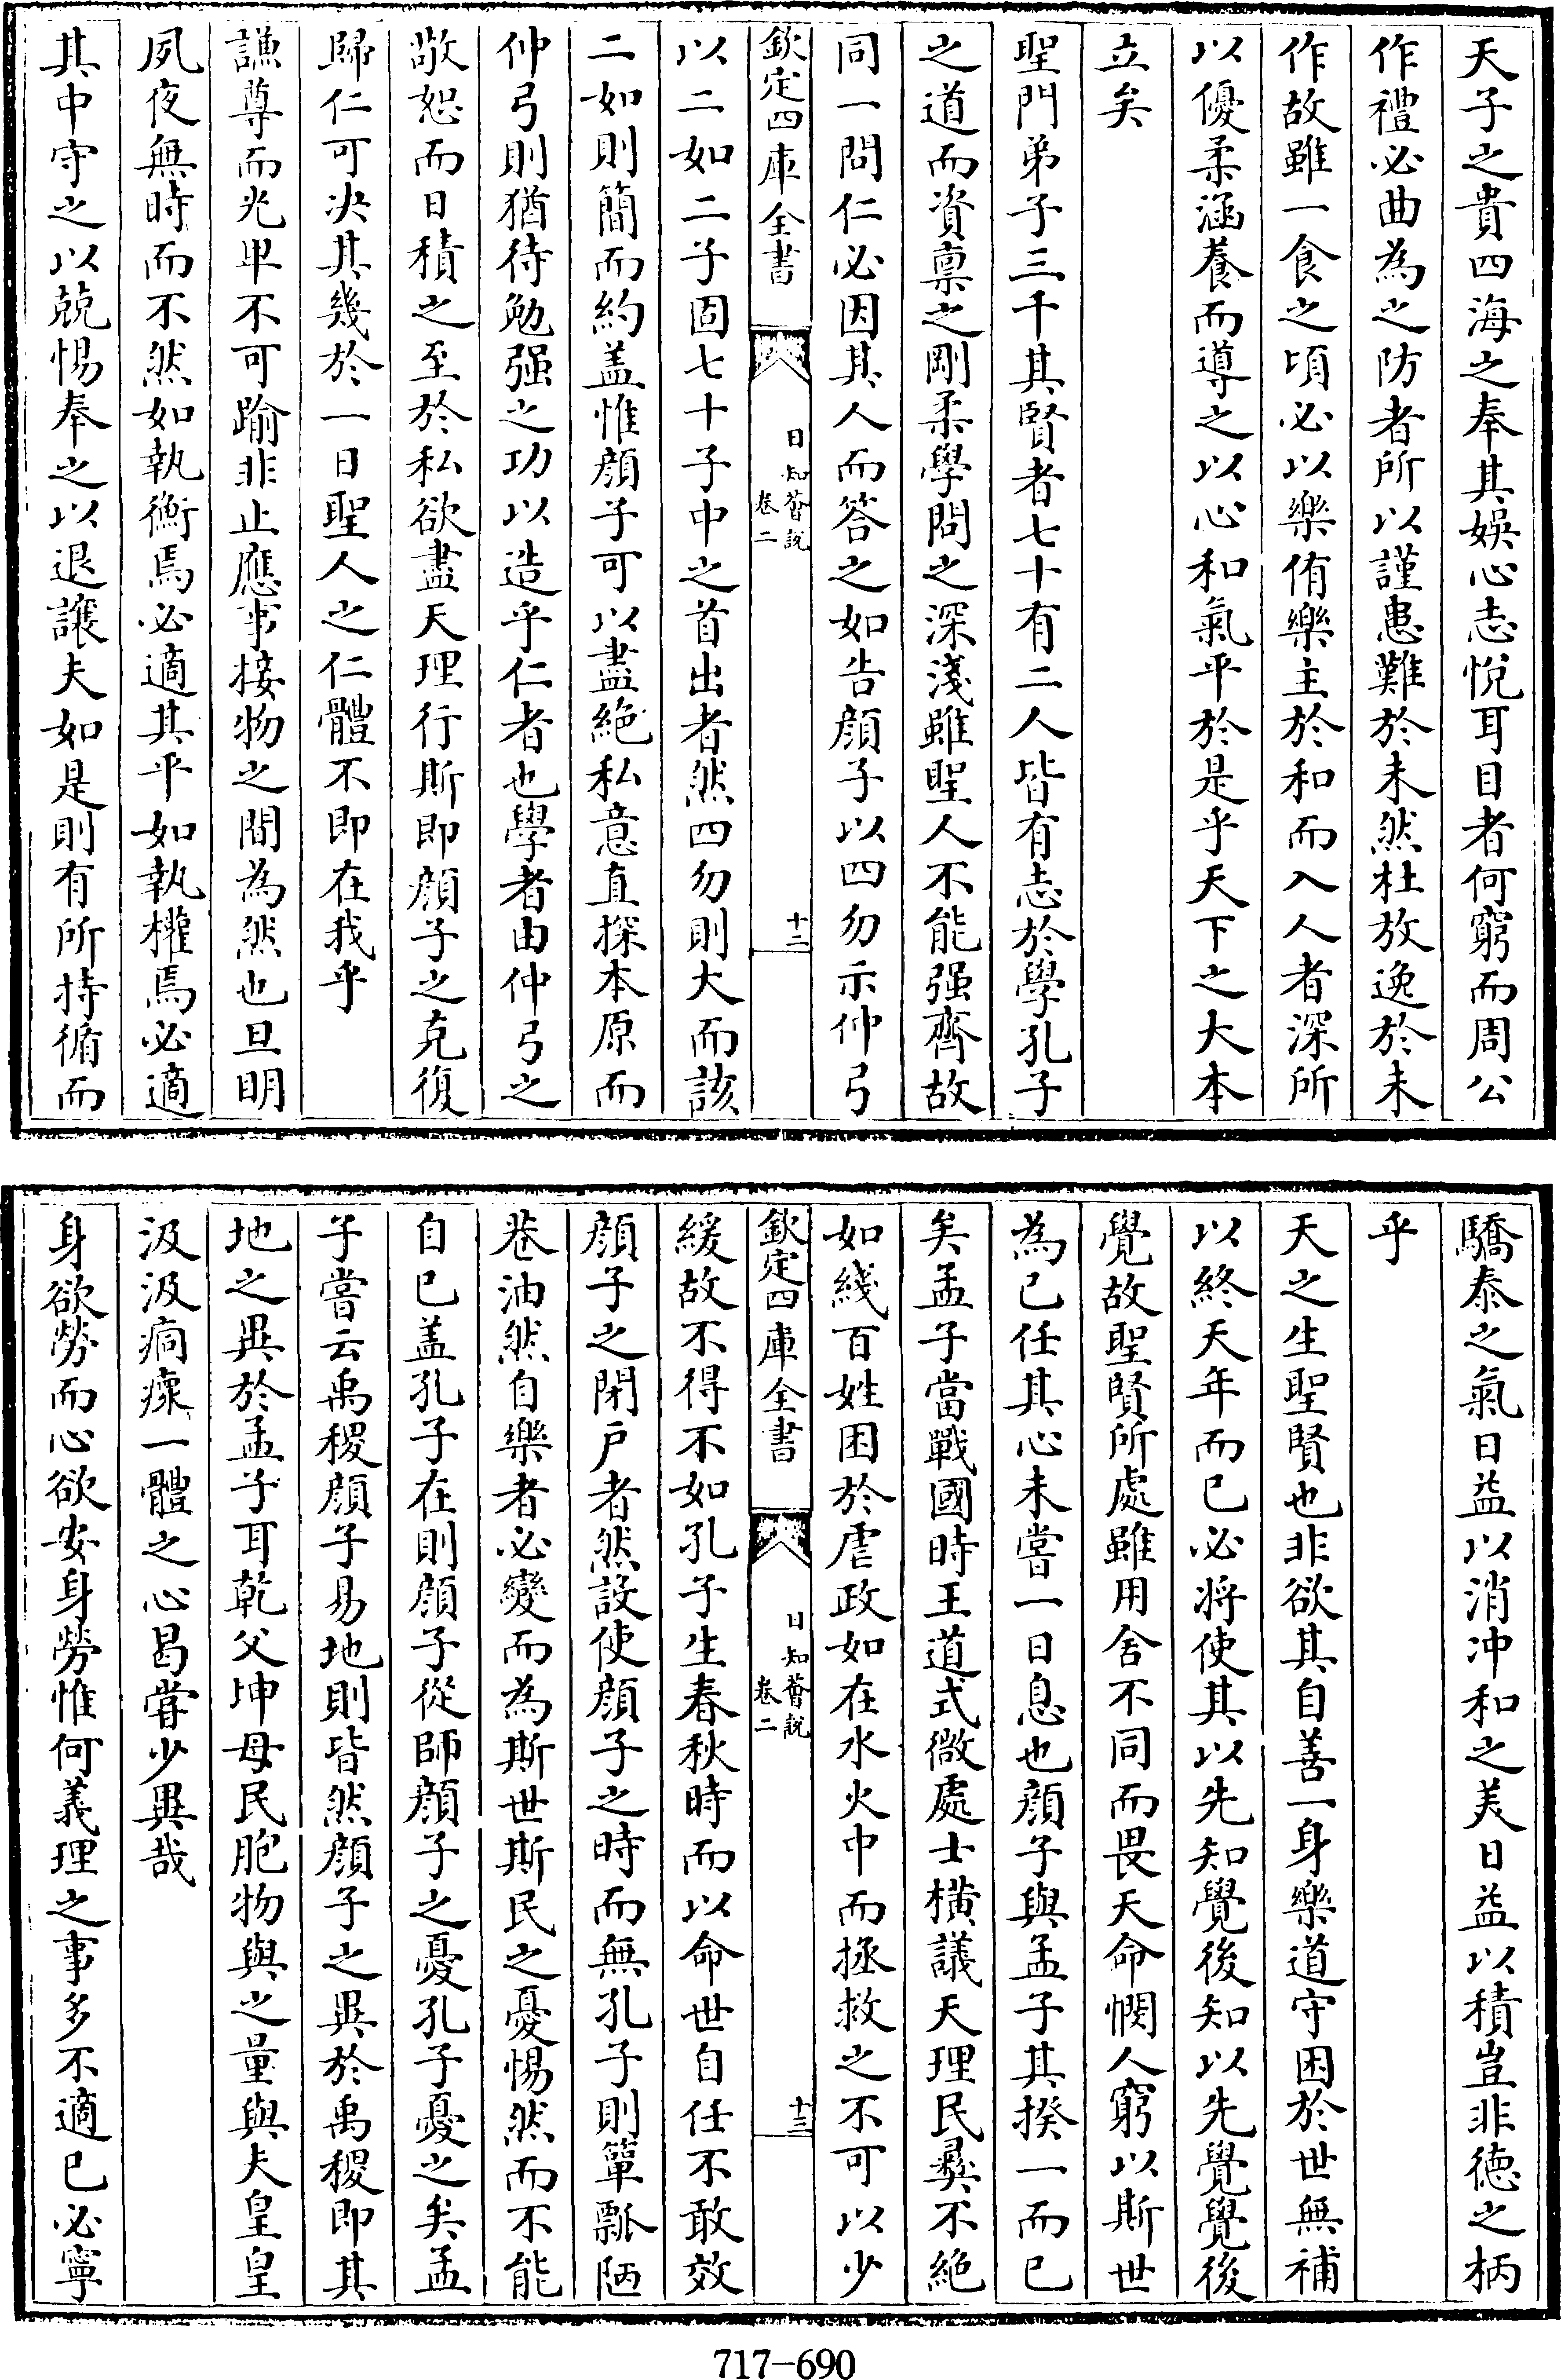 天子之貴四海之奉其娛心志悅耳目者何窮而周公
作禮必曲為之防者所以謹患難於未然杜放逸於未
作故雖一食之頃必以樂侑樂主於和而入人者深所
以優柔涵養而導之以心和氣平於是乎天下之大本
立矣
聖門弟子三千其賢者七十有二人皆有志於學孔子
之道而資稟之剛柔學問之深淺雖聖人不能强齊故
同一問仁必因其人而答之如告顔子以四勿示仲弓
欽定四庫全書
日知薈説
卷二
十二
以二如二子固七十子中之首出者然四勿則大而該
二如則簡而約盖惟顔子可以盡絶私意直探本原而
仲弓則猶待勉强之功以造乎仁者也學者由仲弓之
敬恕而日積之至於私欲盡天理行斯即顔子之克復
歸仁可决其幾於一日聖人之仁體不即在我乎
謙尊而光卑不可踰非止應事接物之間為然也旦明
夙夜無時而不然如執衡焉必適其平如執權焉必適
其中守之以兢惕奉之以退讓夫如是則有所持循而
驕泰之氣日益以消冲和之美日益以積豈非德之柄
乎
天之生聖賢也非欲其自善一身樂道守困於世無補
以終天年而已必將使其以先知覺後知以先覺覺後
覺故聖賢所處雖用舍不同而畏天命憫人窮以斯世
為已任其心未嘗一日息也顔子與孟子其揆一而已
矣孟子當戰國時王道式微處士橫議天理民彝不絶
如綫百姓困於虐政如在水火中而拯救之不可以少
欽定四庫全書
日知薈説
卷二
十三
緩故不得不如孔子生春秋時而以命世自任不敢效
顔子之閉户者然設使顔子之時而無孔子則簞瓢陋
巷油然自樂者必變而為斯世斯民之憂惕然而不能
自已盖孔子在則顔子從師顔子之憂孔子憂之矣孟
子嘗云禹稷顔子易地則皆然顔子之異於禹稷即其
地之異於孟子耳乾父坤母民胞物與之量與夫皇皇
汲汲痌瘝一體之心曷嘗少異哉
身欲勞而心欲安身勞惟何義理之事多不適已必寧
717-690